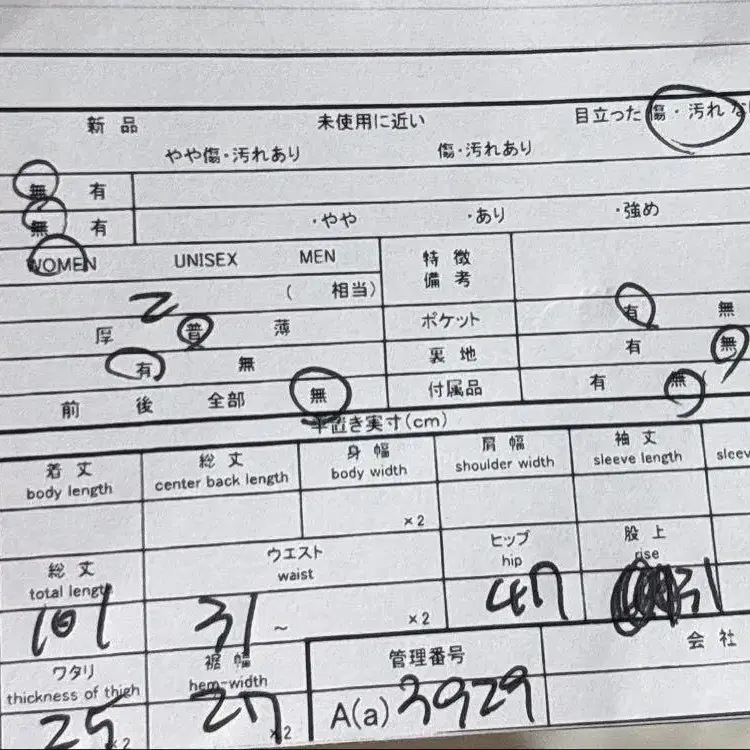 新品 未使用に近い 目立った傷・汚れな
やや傷・汚れあり 傷・汚れあり
無 有
無 有 ・やや ・あり ・強め
WOMEN UNISEX MEN 特徴
備考
2 ( 相当)
厚 普 薄 ポケット 有 無
有 無 裏地 有 無
前 後 全部 無 付属品 有 無
平置き実寸(cm)
着丈 総丈 身幅 肩幅 袖丈
body length center back length body width shoulder width sleeve length sleev
×2
総丈 ウエスト ヒップ 股上
total length waist hip rise
101 31 ~ ×2 47 31
ワタリ 裾幅 管理番号 会社
thickness of thigh hem-width
25 ×2 27 ×2 A(a) 3929